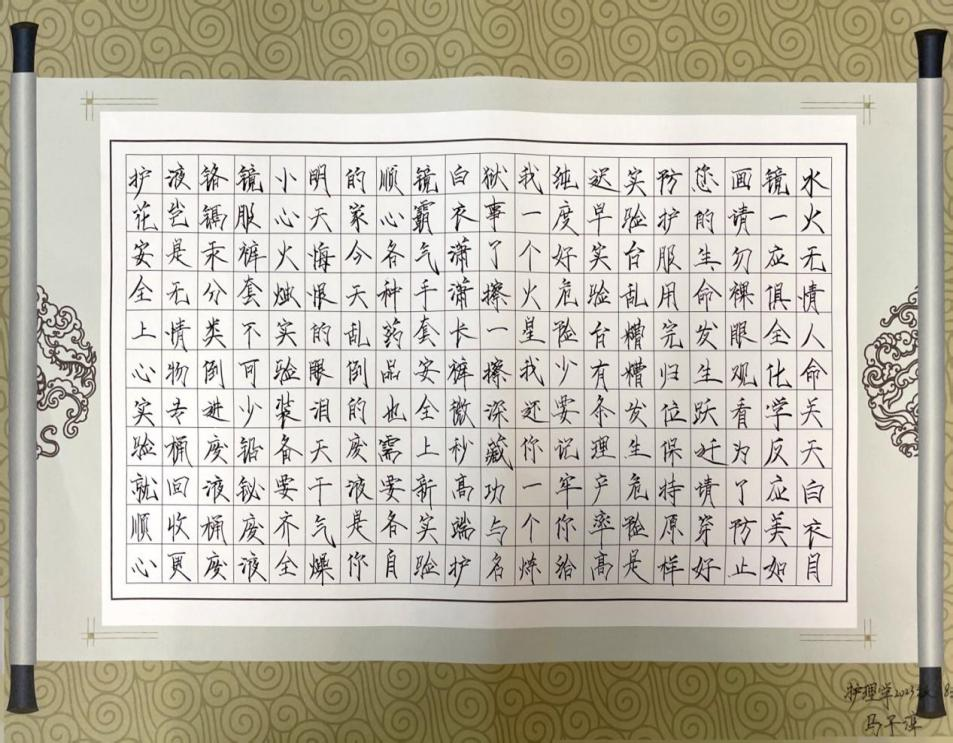 水火无情人命关天白衣目
镜一应俱全化学反应美如
画请勿裸眼观看为了防止
您的生命发生跃迁请穿好
防护服用完归位保持原样
实验台乱糟糟发生危险是
迟早实验台有条理产率高
纯度好危险少要记牢你给
我一个火星我还你一个炼
狱事了擦一擦深藏功与名
白衣潇潇长裤微秒高端护
镜霸气手套安全上新实验
顺心各种药品也需要各自
的家今天乱倒的废液是你
明天悔恨的眼泪天干气燥
小心火烛实验装备要齐全
镜服裤套不可少铅铋废液
铬镉汞分类倒进废液桶废
液岂是无情物专桶回收更
护花安全上心实验就顺心
护理学2023级
马子淳